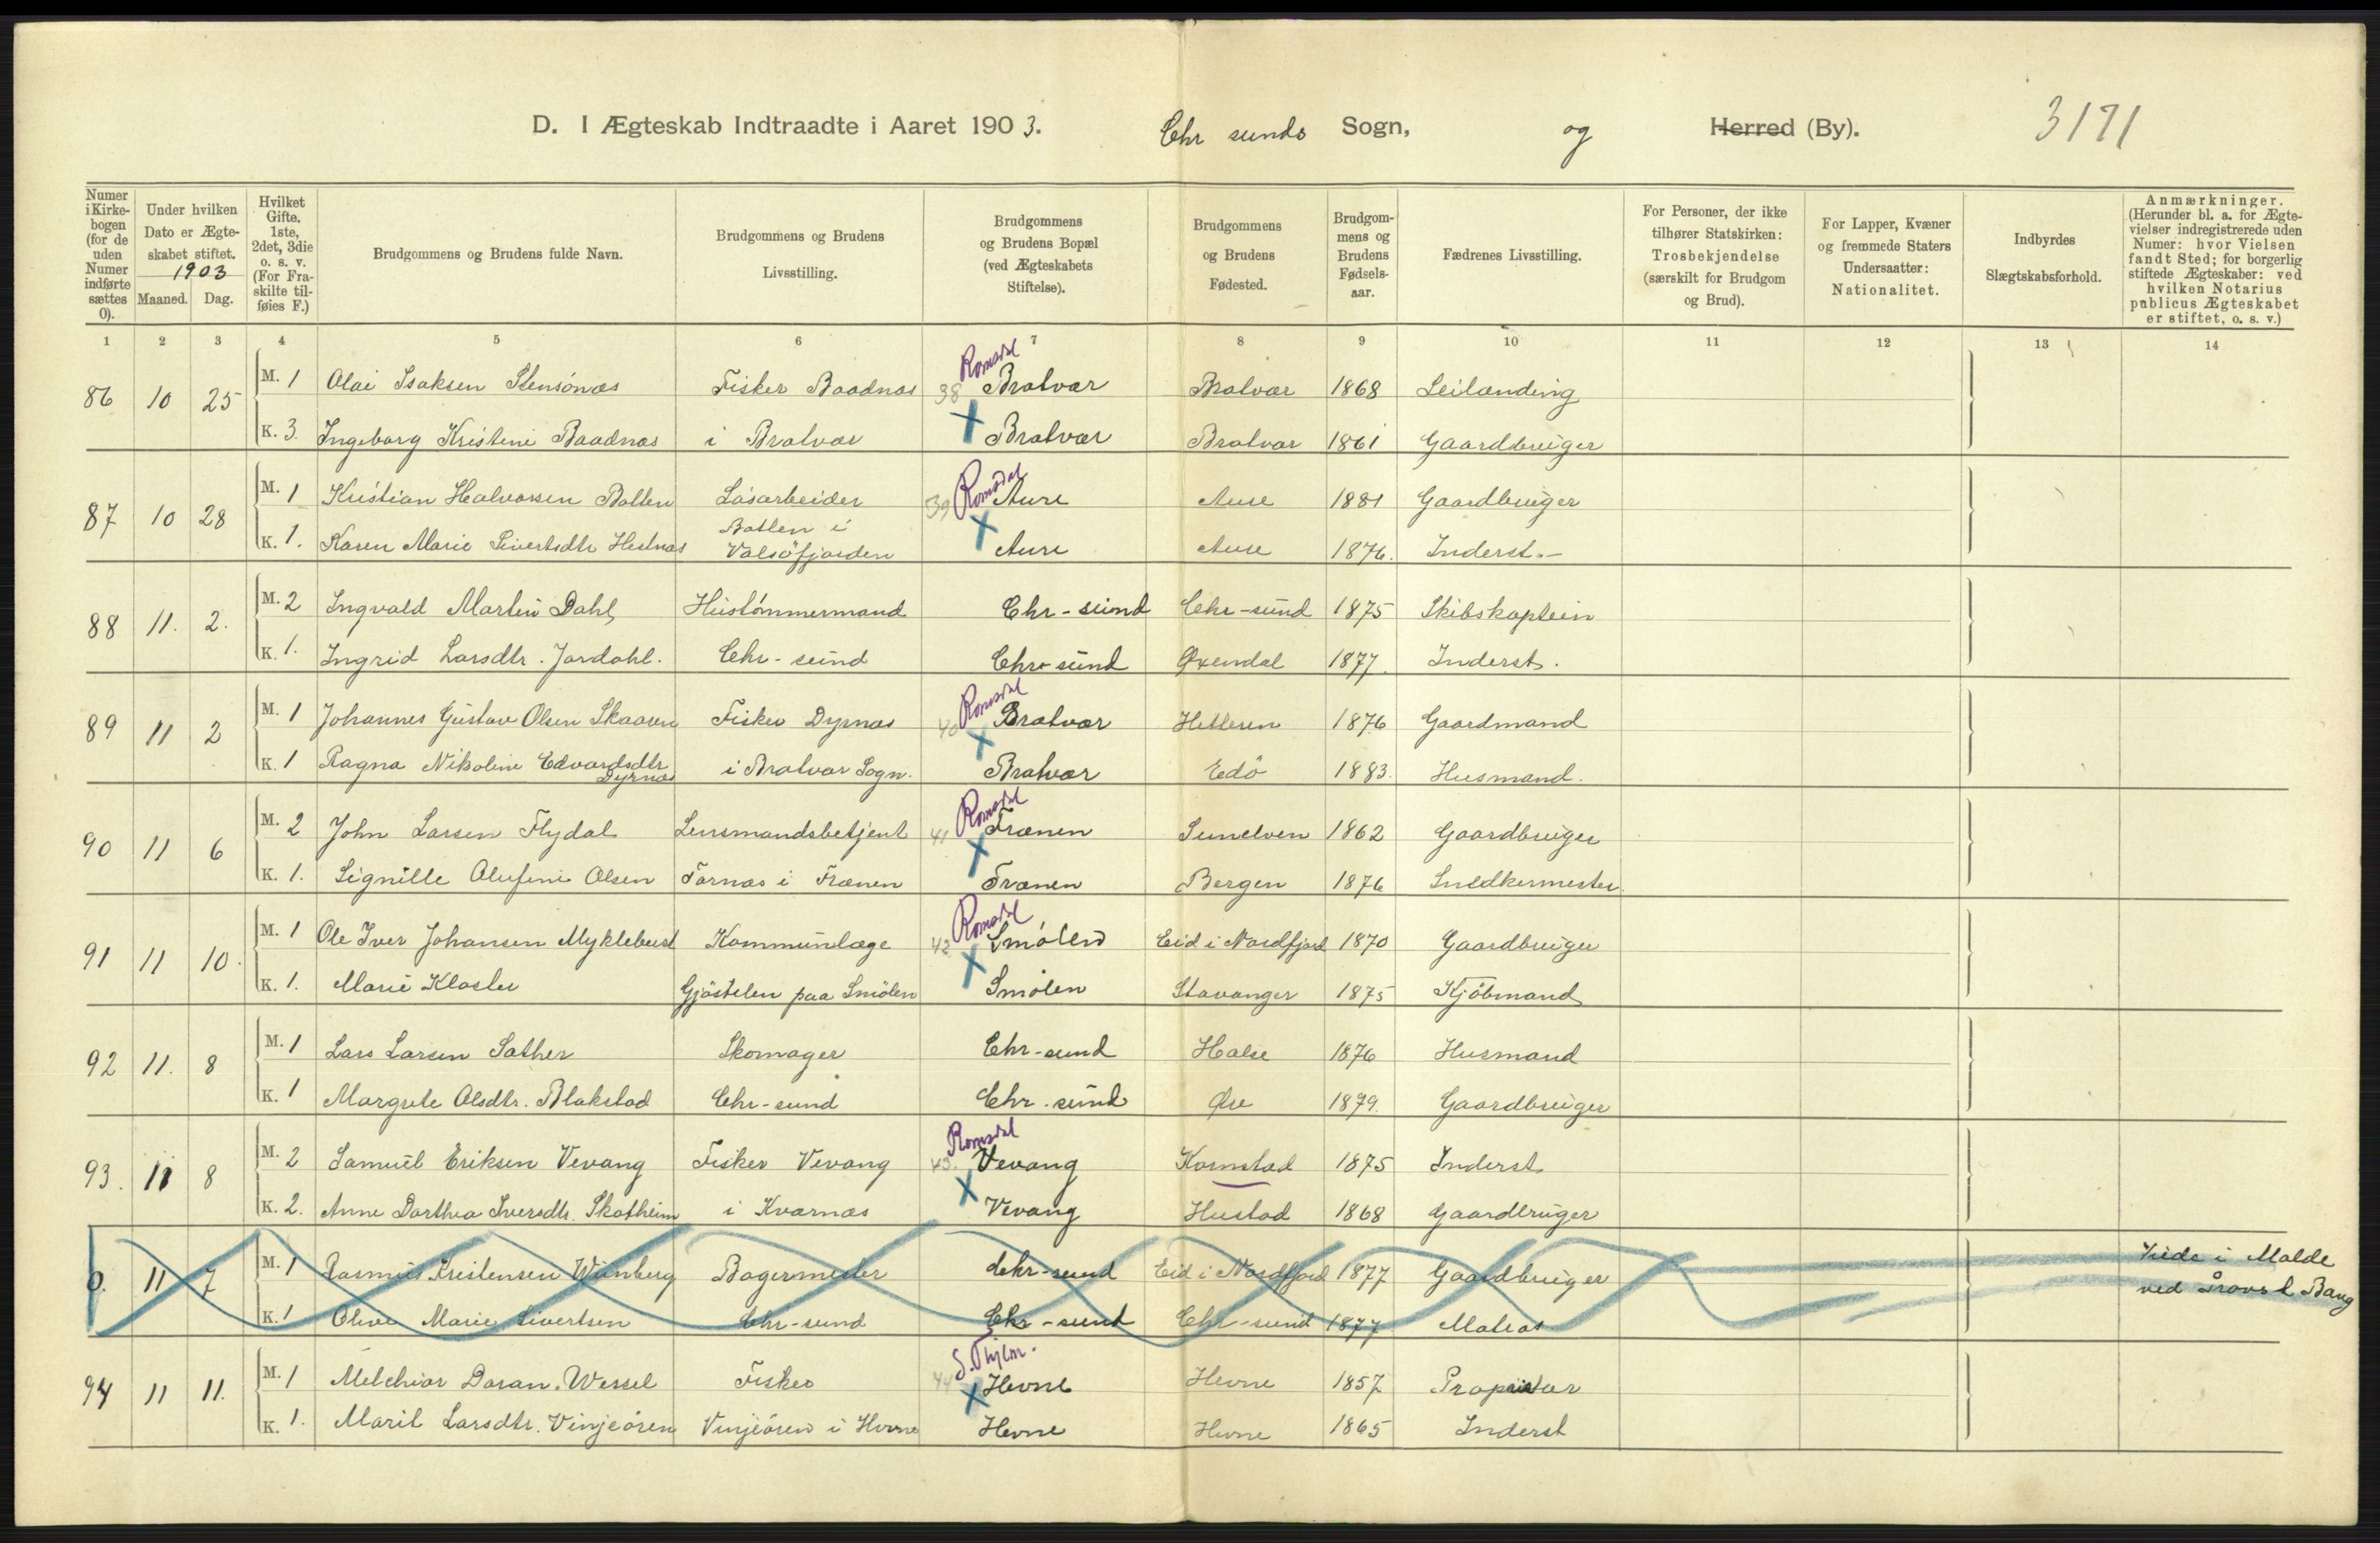 D. I Ægteskab Indtraadte i Aaret 1903. Chr sunds Sogn, og Herred (By). 3171
Numer i Kirkebogen (for de uden Numer indførte sættes 0).
Under hvilken Dato er Ægteskabet stiftet. 1903 Maaned. Dag.
Hvilket Gifte. 1ste, 2det, 3die o. s. v. (For Fraskilte tilføies F.)
Brudgommens og Brudens fulde Navn.
Brudgommens og Brudens Livsstilling.
Brudgommens og Brudens Bopæl (ved Ægteskabets Stiftelse).
Brudgommens og Brudens Fødested.
Brudgommens og Brudens Fødselsaar.
Fædrenes Livsstilling.
For Personer, der ikke tilhører Statskirken: Trosbekjendelse (særskilt for Brudgom og Brud).
For Lapper, Kvæner og fremmede Staters Undersaatter: Nationalitet.
Indbyrdes Slægtskabsforhold.
Anmærkninger. (Herunder bl. a. for Ægtevielser indregistrerede uden Numer: hvor Vielsen fandt Sted; for borgerlig stiftede Ægteskaber: ved hvilken Notarius publicus Ægteskabet er stiftet, o. s. v.)
1 2 3 4 5 6 7 8 9 10 11 12 13 14
Romsdal
86 10 25 M. 1 Olai Isaksen Stensönæs Fisker Baadnæs 38 Bratvær Bratvær 1868 Leilænding
K. 3. Ingeborg Kristine Baadnæs i Bratvær Bratvær Bratvær 1861 Gaardbruger
Romsdal
87 10 28 M. 1 Kristian Halvorsen Botten Løsarbeider 39 Aure Aure 1881 Gaardbruger
K. 1. Karen Marie Sivertsdtr Hestnæs Botten i Valsöfjorden Aure Aure 1876. Inderst.
88 11. 2. M. 2 Ingvald Martin Dahl Hustömmermand Chr-sund Chr-sund 1875 Skibskaptein
K. 1. Ingrid Larsdtr. Jordahl. Chr-sund Chr-sund Øxendal 1877. Inderst.
Romsdal
89 11 2 M. 1 Johannes Gustav Olsen Skaaren Fisker Dyrnæs 40 Bratvær Hitteren 1876 Gaardmand
K. 1 Ragna Nikoline Edvardsdtr Dyrnæs i Bratvær Sogn. Bratvær Edö 1883. Husmand.
Romsdal
90 11 6 M. 2 John Larsen Flydal Lensmandsbetjent 41 Frænen Sunelven 1862 Gaardbruger
K. 1. Signille Olufine Olsen Tornæs i Frænen Frænen Bergen 1876 Snedkermester.
Romsdal
91 11 10. M. 1 Ole Iver Johansen Myklebust Kommunlæge 42 Smölen Eid i Nordfjord 1870 Gaardbruger
K. 1. Marie Kloster Gjöstelen paa Smölen Smölen Stavanger 1875 Kjöbmand
92 11. 8 M. 1 Lars Larsen Sæther Skomager Chr-sund Halse 1876 Husmand
K. 1 Margrete Olsdtr. Blakstad Chr-sund Chr.sund Øre 1879. Gaardbruger
Romsdal
93. 11 8 M. 2 Samuel Eriksen Vevang Fisker Vevang 43. Vevang Kornstad 1875 Inderst
K. 2. Anne Dorthea Iversdtr. Skotheim i Kvernæs Vevang Hustad 1868 Gaardbruger
0. 11 7 M. 1 Rasmus Kristensen Bagermester Chr-sund Eid i Nordfjord 1877 Gaardbruger Viede i Molde
K. 1 Olive Marie Sivertsen Chr-sund Chr-sund Chr-sund 1877 Matros ved Provst Bang
S. Thjem.
94 11 11. M. 1 Melchior Doran. Wessel Fisker 44 Hevne Hevne 1857. Proprietær
K. 1. Marit Larsdtr. Vinjeören Vinjeören i Hevne Hevne Hevne 1865 Inderst